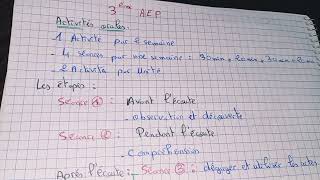 3ème AEP
Activités orales:
1 Activité par 2 semaine
- 4 séances par une semaine : 30min + 20min + 30min + 20min
- 2 Activité par Unité
Les étapes :
Séance ① : Avant l'écoute
- observation et découverte
Séance ② : Pendant l'écoute
- Compréhension
Après l'écoute : - Séance ③ : dégager et utiliser les actes